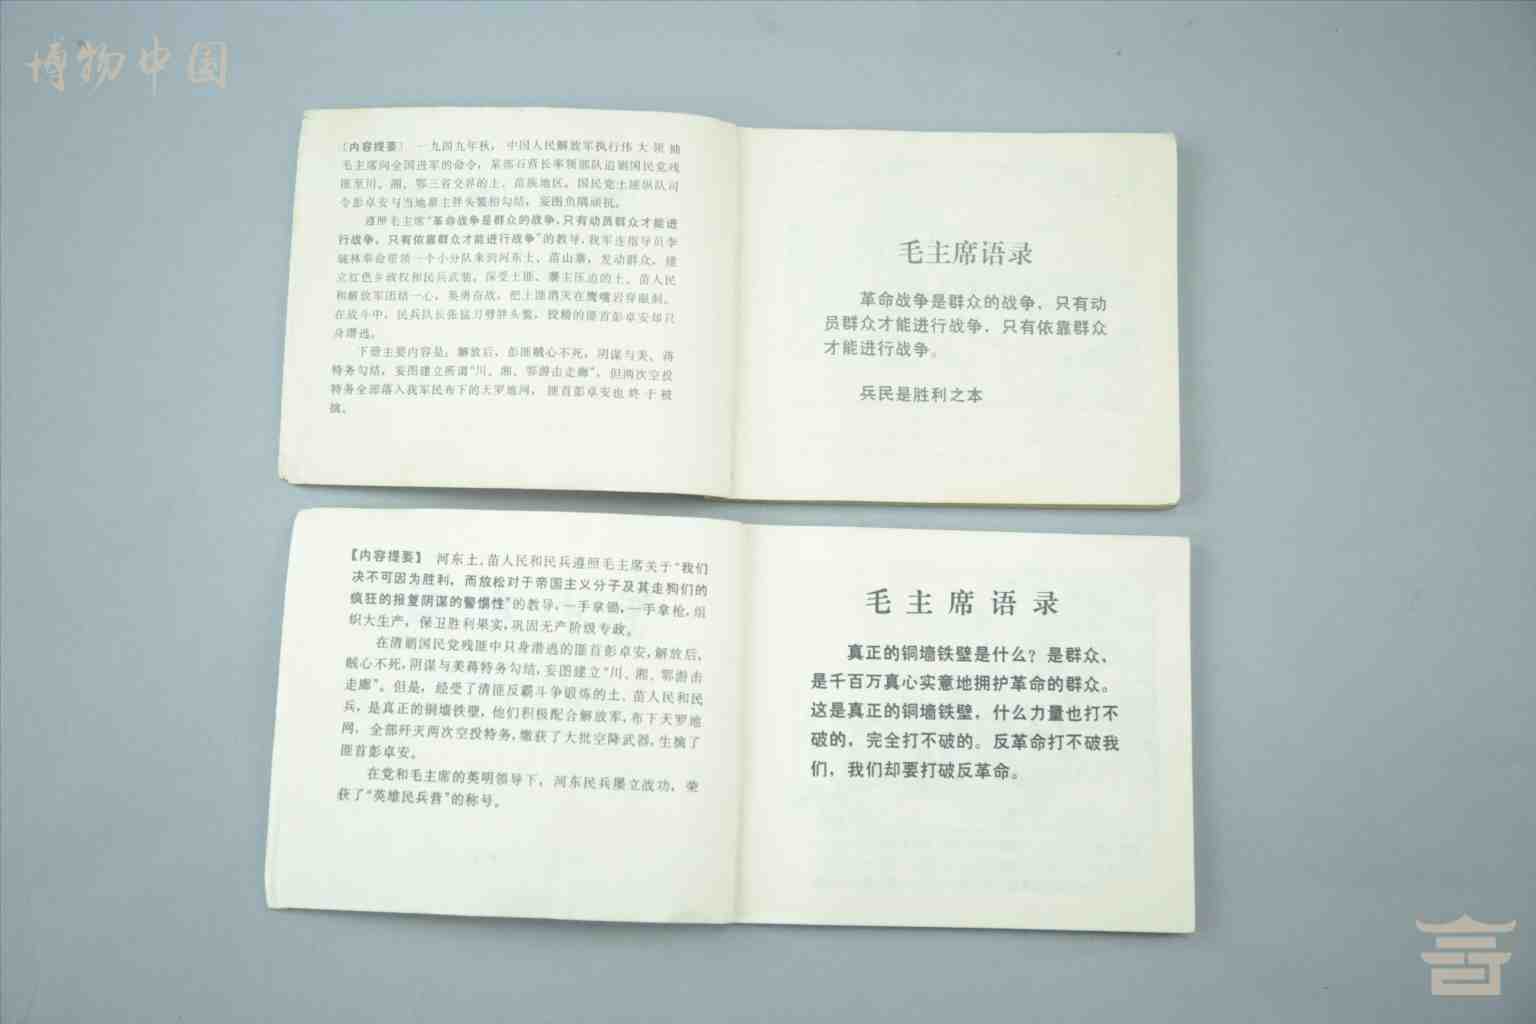 博物中国
〔内容提要〕 一九四九年秋，中国人民解放军执行伟大领袖
毛主席向全国进军的命令，某部石营长率领部队追剿国民党残
匪至川、湘、鄂三省交界的土、苗族地区。国民党土匪纵队司
令彭卓安与当地寨主胖头鳖相勾结，妄图负隅顽抗。
遵照毛主席“革命战争是群众的战争，只有动员群众才能进
行战争，只有依靠群众才能进行战争”的教导，我军连指导员李
毓林奉命带领一个小分队来到河东土、苗山寨，发动群众，建
立红色乡政权和民兵武装。深受土匪、寨主压迫的土、苗人民
和解放军团结一心，英勇奋战，把土匪消灭在鹰嘴岩穿眼洞。
在战斗中，民兵队长张猛刀劈胖头鳖，狡猾的匪首彭卓安却只
身潜逃。
下册主要内容是：解放后，彭匪贼心不死，阴谋与美、蒋
特务勾结，妄图建立所谓“川、湘、鄂游击走廊”。但两次空投
特务全部落入我军民布下的天罗地网，匪首彭卓安也终于被
擒。
毛主席语录
革命战争是群众的战争，只有动
员群众才能进行战争，只有依靠群众
才能进行战争。
兵民是胜利之本
【内容提要】 河东土、苗人民和民兵遵照毛主席关于“我们
决不可因为胜利，而放松对于帝国主义分子及其走狗们的
疯狂的报复阴谋的警惕性”的教导，一手拿锄，一手拿枪，组
织大生产，保卫胜利果实，巩固无产阶级专政。
在清剿国民党残匪中只身潜逃的匪首彭卓安，解放后，
贼心不死，阴谋与美蒋特务勾结，妄图建立“川、湘、鄂游击
走廊”。但是，经受了清匪反霸斗争锻炼的土、苗人民和民
兵，是真正的铜墙铁壁，他们积极配合解放军，布下天罗地
网，全部歼灭两次空投特务，缴获了大批空降武器，生擒了
匪首彭卓安。
在党和毛主席的英明领导下，河东民兵屡立战功，荣
获了“英雄民兵营”的称号。
毛主席语录
真正的铜墙铁壁是什么？是群众，
是千百万真心实意地拥护革命的群众。
这是真正的铜墙铁壁，什么力量也打不
破的，完全打不破的。反革命打不破我
们，我们却要打破反革命。